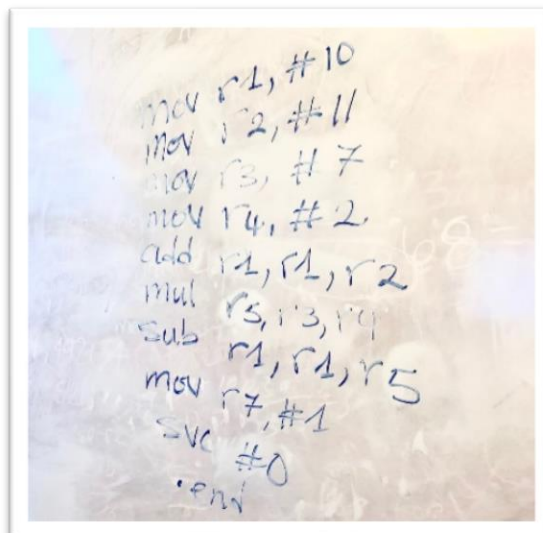 mov r1, #10
mov r2, #11
mov r3, #7
mov r4, #2
add r1, r1, r2
mul r5, r3, r4
sub r1, r1, r5
mov r7, #1
svc #0
.end